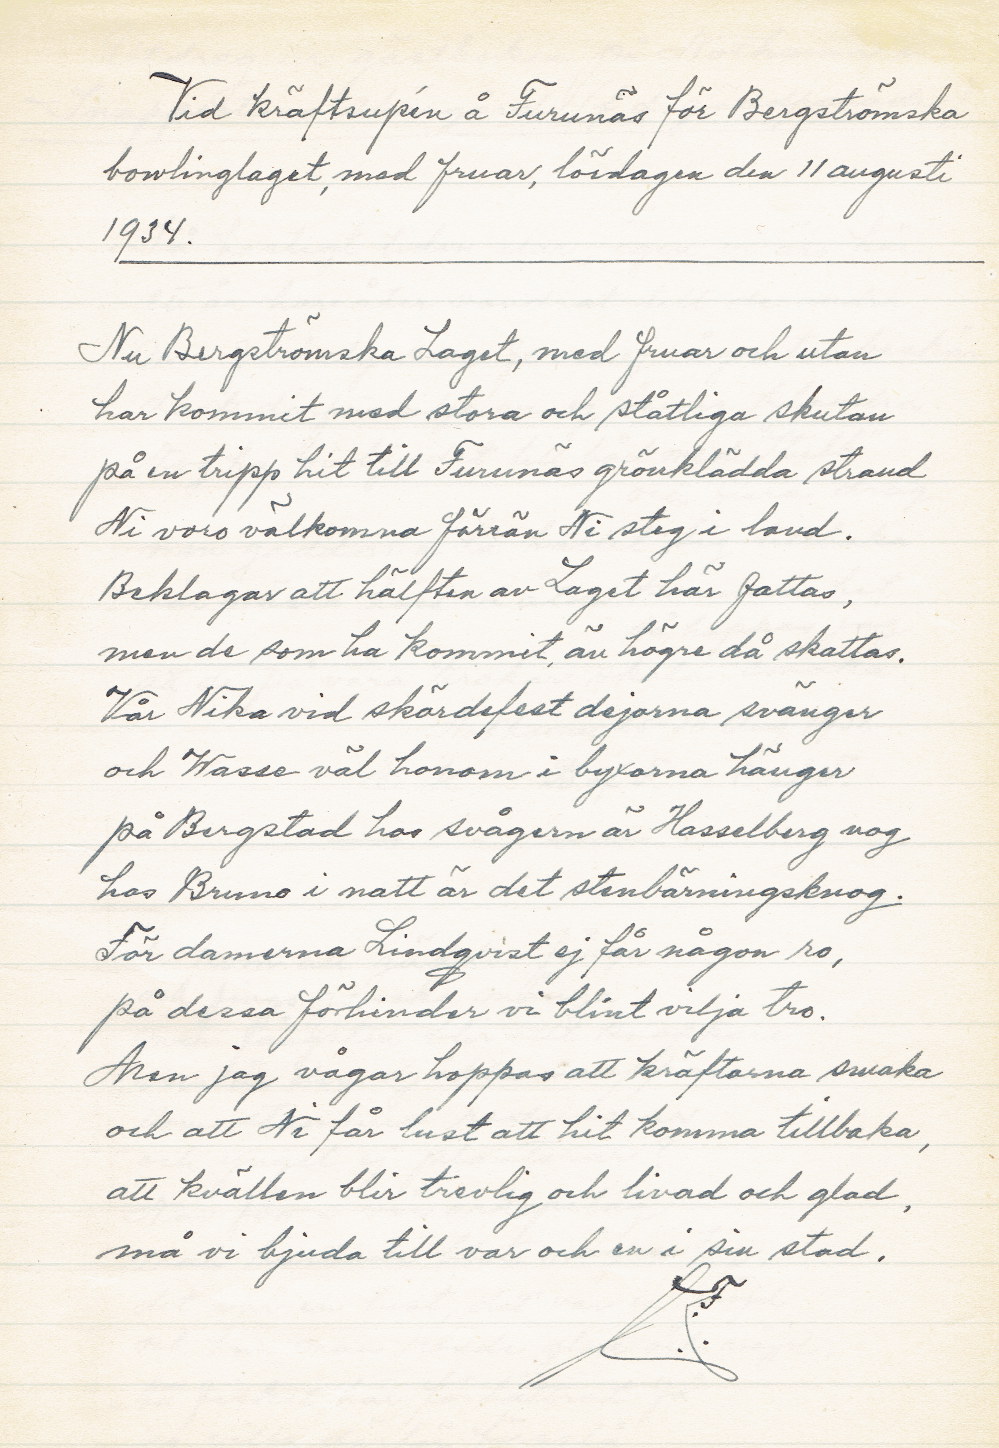 Vid kräftsupén å Furunäs för Bergströmska
bowlinglaget, med fruar, lördagen den 11 augusti
1934.
Nu Bergströmska Laget, med fruar och utan
har kommit med stora och ståtliga skutan
på en tripp hit till Furunäs grönklädda strand
Ni voro välkomna förrän Ni steg i land.
Beklagar att hälften av Laget här fattas,
men de som ha kommit, än högre då skattas.
Vår Nika vid skördefest dejorna svänger
och Wasse väl honom i byxorna hänger
på Bergstad hos svågern är Hasselberg nog
hos Bruno i natt är det stenbärningsknog.
För damerna Lindqvist ej får någon ro,
på dessa förhinder vi blint vilja tro.
Men jag vågar hoppas att kräftorna smaka
och att Ni får lust att hit komma tillbaka,
att kvällen blir trevlig och livad och glad,
må vi bjuda till var och en i sin stad.